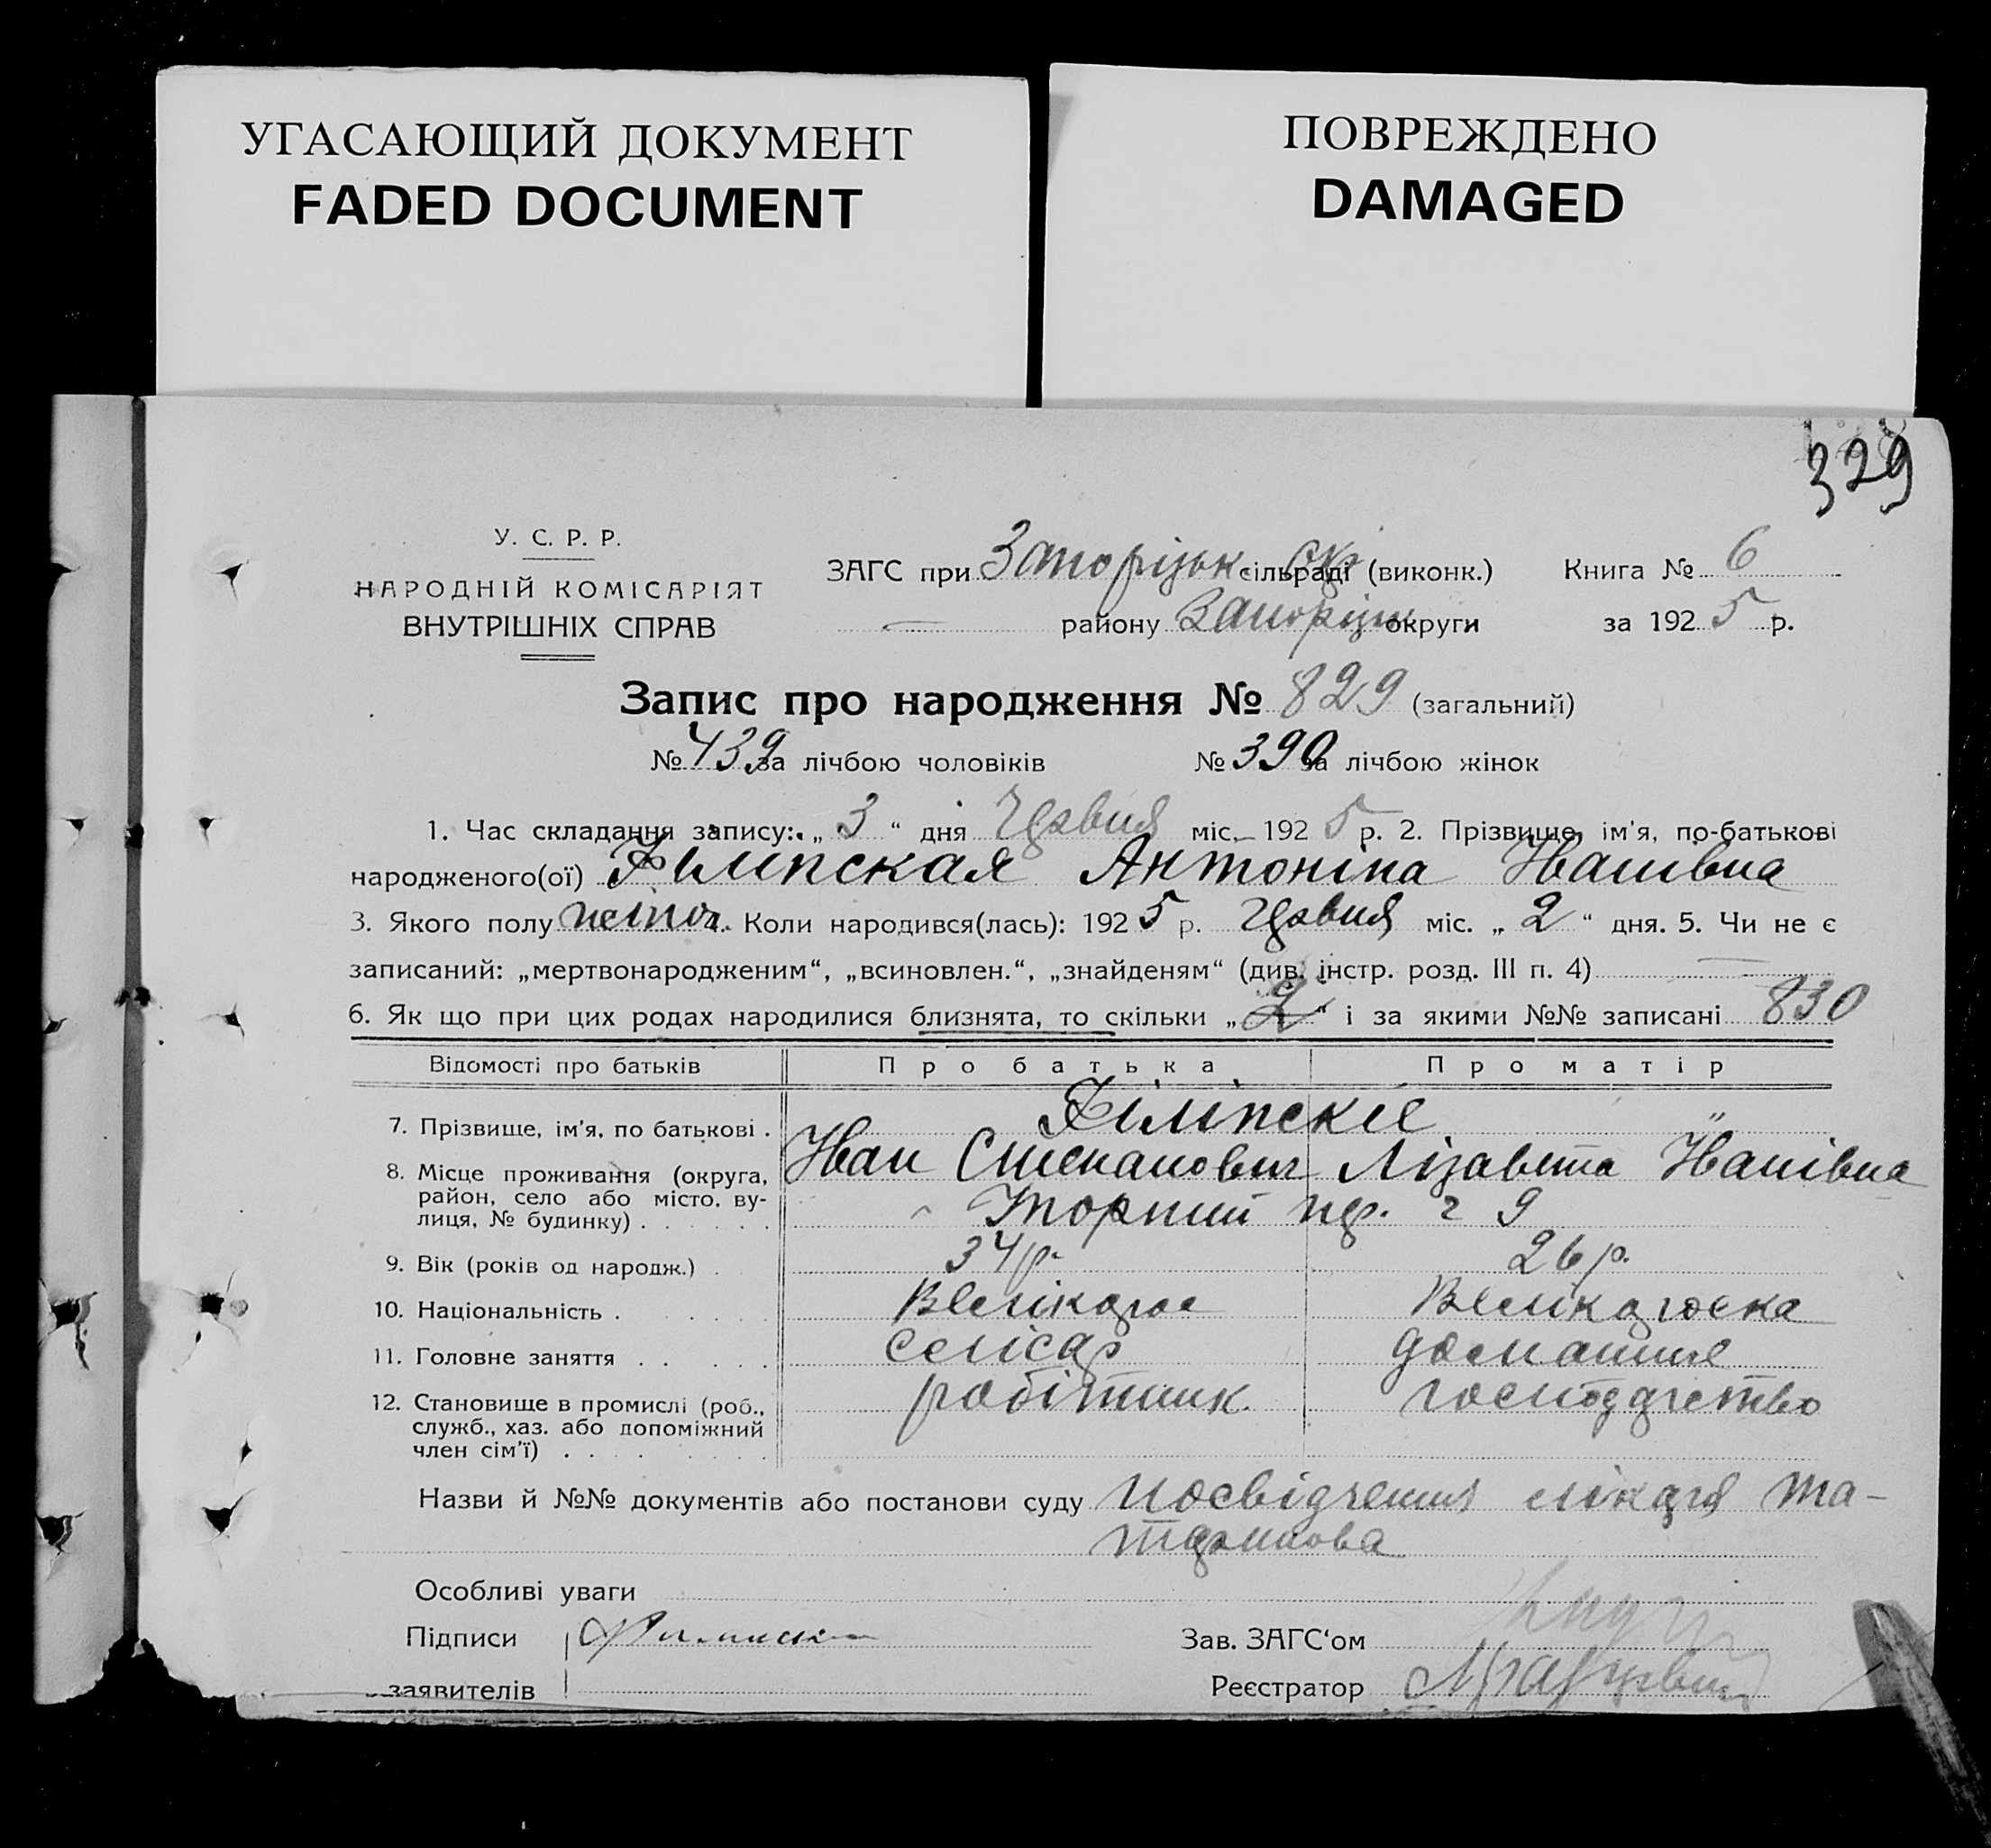 УГАСАЮЩИЙ ДОКУМЕНТ
FADED DOCUMENT
ПОВРЕЖДЕНО
DAMAGED
329
У. С. Р. Р.
НАРОДНІЙ КОМІСАРІЯТ
ВНУТРІШНІХ СПРАВ
ЗАГС при Запоріцьк сільраді (виконк.)
району Запоріцьк округи
Книга № 6
за 1925 р.
Запис про народження № 829 (загальний)
№ 439 за лічбою чоловіків № 390 за лічбою жінок
1. Час складання запису: „3“ дня Червня міс. 1925 р. 2. Прізвище, ім'я, по-батькові
народженого(ої) Филипская Антоніна Іванівна
3. Якого полу Коли народився(лась): 1925 р. Червня міс. „2“ дня. 5. Чи не є
записаний: „мертвонародженим“, „всиновлен.“, „знайденям“ (див. інстр. розд. III п. 4)
6. Як що при цих родах народилися близнята, то скільки „2“ і за якими №№ записані 830
Відомості про батьків Про батька Про матір
7. Прізвище, ім'я, по батькові . Філіпскіє "
Іван Степанович Лізавета Іванівна
8. Місце проживання (округа,
район, село або місто, ву-
лиця, № будинку) . . . . . . 9
9. Вік (років од народж.) . 34 р. 26 р.
10. Національність . Велікорос Велікороска
11. Головне заняття . . слісар домашнє
12. Становище в промислі (роб.,
служб., хаз. або допоміжний
член сім'ї) . . . . робітник. господарство
Назви й №№ документів або постанови суду посвідчення лікаря
Особливі уваги
Підписи
заявителів
Зав. ЗАГС'ом
Реєстратор